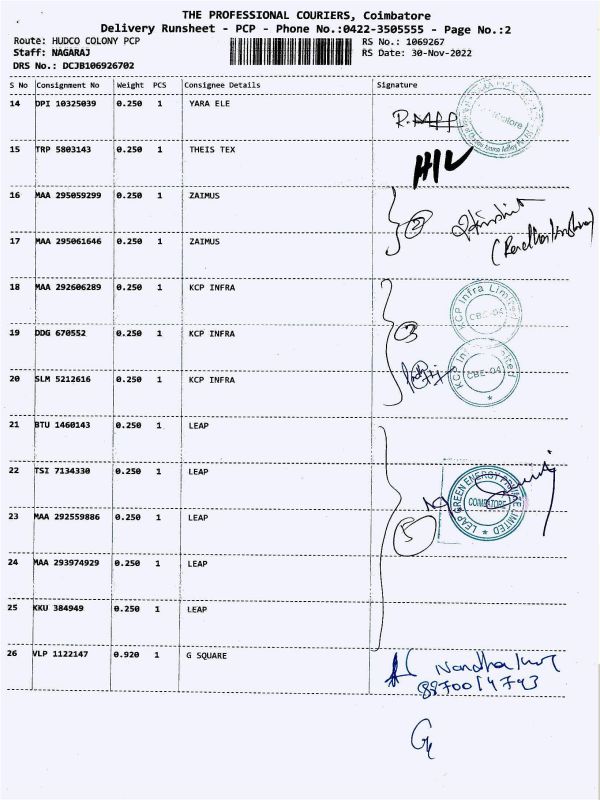 THE PROFESSIONAL COURIERS, Coimbatore
Delivery Runsheet - PCP - Phone No.:0422-3505555 - Page No.:2
Route: HUDCO COLONY PCP RS No.: 1069267
Staff: NAGARAJ RS Date: 30-Nov-2022
DRS No.: DCJB106926702
S No Consignment No Weight PCS Consignee Details Signature
14 DPI 10325039 0.250 1 YARA ELE
15 TRP 5803143 0.250 1 THEIS TEX
H/L
16 MAA 295059299 0.250 1 ZAIMUS
2
17 MAA 295061646 0.250 1 ZAIMUS
18 MAA 292606289 0.250 1 KCP INFRA
KCP Infra Limited
CBE-04
19 DDG 670552 0.250 1 KCP INFRA
3
20 SLM 5212616 0.250 1 KCP INFRA
KCP Infra Limited
CBE-04
21 BTU 1460143 0.250 1 LEAP
22 TSI 7134330 0.250 1 LEAP
LEAP GREEN ENERGY PRIVATE LIMITED
COIMBATORE
23 MAA 292559886 0.250 1 LEAP
5
24 MAA 293974929 0.250 1 LEAP
25 KKU 384949 0.250 1 LEAP
26 VLP 1122147 0.920 1 G SQUARE
Nandhakumar
8870014743